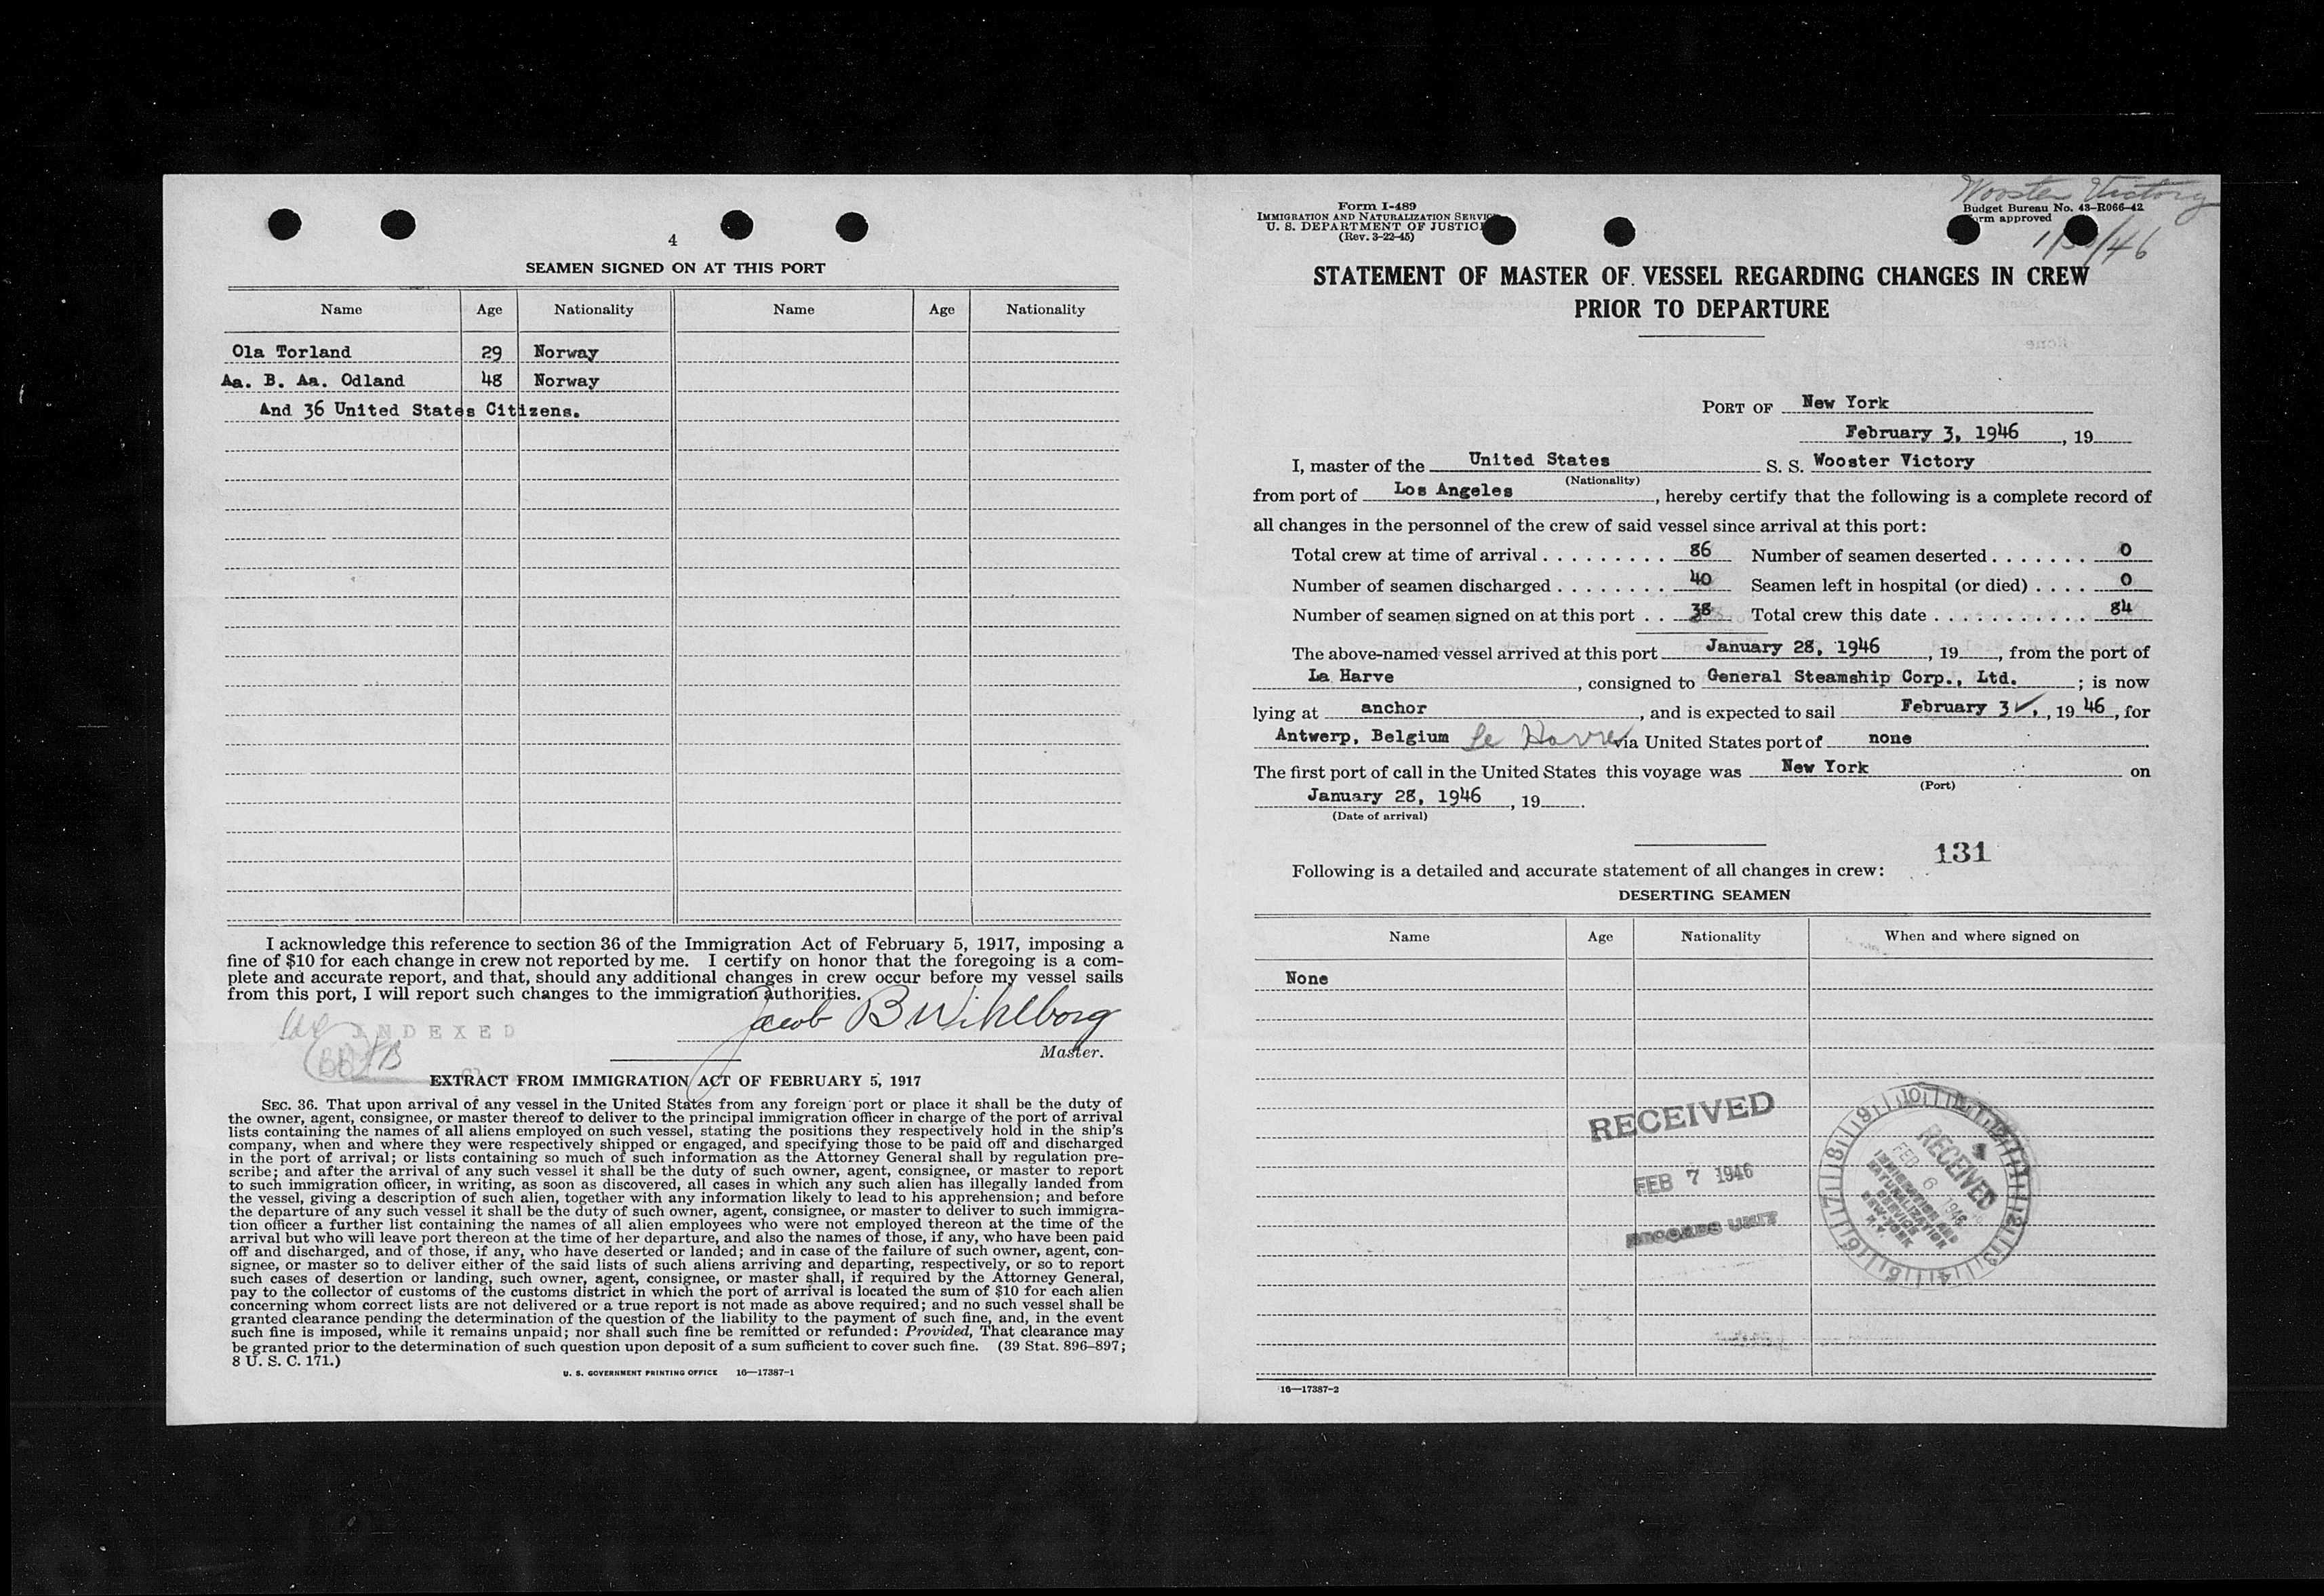 4
SEAMEN SIGNED ON AT THIS PORT
Name Age Nationality Name Age Nationality
Ola Torland 29 Norway
Aa. B. Aa. Odland 48 Norway
And 36 United States Citizens.
I acknowledge this reference to section 36 of the Immigration Act of February 5, 1917, imposing a
fine of $10 for each change in crew not reported by me. I certify on honor that the foregoing is a com-
plete and accurate report, and that, should any additional changes in crew occur before my vessel sails
from this port, I will report such changes to the immigration authorities.
Jacob B Wihlborg
INDEXED
Master.
EXTRACT FROM IMMIGRATION ACT OF FEBRUARY 5, 1917
SEC. 36. That upon arrival of any vessel in the United States from any foreign port or place it shall be the duty of
the owner, agent, consignee, or master thereof to deliver to the principal immigration officer in charge of the port of arrival
lists containing the names of all aliens employed on such vessel, stating the positions they respectively hold in the ship's
company, when and where they were respectively shipped or engaged, and specifying those to be paid off and discharged
in the port of arrival; or lists containing so much of such information as the Attorney General shall by regulation pre-
scribe; and after the arrival of any such vessel it shall be the duty of such owner, agent, consignee, or master to report
to such immigration officer, in writing, as soon as discovered, all cases in which any such alien has illegally landed from
the vessel, giving a description of such alien, together with any information likely to lead to his apprehension; and before
the departure of any such vessel it shall be the duty of such owner, agent, consignee, or master to deliver to such immigra-
tion officer a further list containing the names of all alien employees who were not employed thereon at the time of the
arrival but who will leave port thereon at the time of her departure, and also the names of those, if any, who have been paid
off and discharged, and of those, if any, who have deserted or landed; and in case of the failure of such owner, agent, con-
signee, or master so to deliver either of the said lists of such aliens arriving and departing, respectively, or so to report
such cases of desertion or landing, such owner, agent, consignee, or master shall, if required by the Attorney General,
pay to the collector of customs of the customs district in which the port of arrival is located the sum of $10 for each alien
concerning whom correct lists are not delivered or a true report is not made as above required; and no such vessel shall be
granted clearance pending the determination of the question of the liability to the payment of such fine, and, in the event
such fine is imposed, while it remains unpaid; nor shall such fine be remitted or refunded: Provided, That clearance may
be granted prior to the determination of such question upon deposit of a sum sufficient to cover such fine. (39 Stat. 896-897;
8 U. S. C. 171.)
U. S. GOVERNMENT PRINTING OFFICE 16—17387-1
Wooster Victory
Form I-489
IMMIGRATION AND NATURALIZATION SERVICE
U. S. DEPARTMENT OF JUSTICE
(Rev. 3-22-45)
Budget Bureau No. 43-R066-42
Form approved
1/30/46
STATEMENT OF MASTER OF VESSEL REGARDING CHANGES IN CREW
PRIOR TO DEPARTURE
PORT OF New York
February 3, 1946, 19
I, master of the United States S. S. Wooster Victory
(Nationality)
from port of Los Angeles, hereby certify that the following is a complete record of
all changes in the personnel of the crew of said vessel since arrival at this port:
Total crew at time of arrival . . . . . . . . . 86 Number of seamen deserted . . . . . . . 0
Number of seamen discharged . . . . . . . . 40 Seamen left in hospital (or died) . . . . 0
Number of seamen signed on at this port . . 38 Total crew this date . . . . . . . . . . . 84
The above-named vessel arrived at this port January 28, 1946, 19, from the port of
La Harve, consigned to General Steamship Corp., Ltd. ; is now
lying at anchor, and is expected to sail February 3 ✓, , 19 46, for
Antwerp, Belgium Le Havre via United States port of none.
The first port of call in the United States this voyage was New York on
(Port)
January 28, 1946, 19.
(Date of arrival)
131
Following is a detailed and accurate statement of all changes in crew:
DESERTING SEAMEN
Name Age Nationality When and where signed on
None
RECEIVED
FEB 7 1946
RECORDS UNIT
RECEIVED
FEB 6 1946
IMMIGRATION AND
NATURALIZATION
SERVICE
NEW YORK
N.Y.
16—17387-2